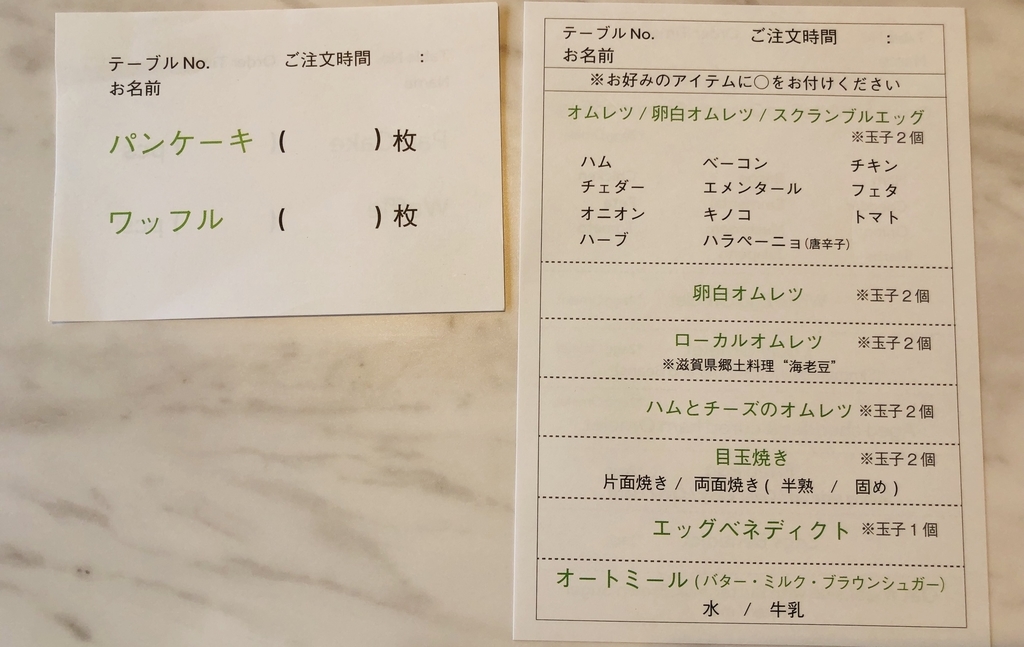 テーブル No. ご注文時間 :
お名前
パンケーキ ( ) 枚
ワッフル ( ) 枚
テーブル No. ご注文時間 :
お名前
※お好みのアイテムに〇をお付けください
オムレツ / 卵白オムレツ / スクランブルエッグ
※玉子２個
ハム ベーコン チキン
チェダー エメンタール フェタ
オニオン キノコ トマト
ハーブ ハラペーニョ (唐辛子)
卵白オムレツ ※玉子２個
ローカルオムレツ ※玉子２個
※滋賀県郷土料理 “海老豆”
ハムとチーズのオムレツ ※玉子２個
目玉焼き ※玉子２個
片面焼き / 両面焼き ( 半熟 / 固め )
エッグベネディクト ※玉子１個
オートミール (バター・ミルク・ブラウンシュガー)
水 / 牛乳